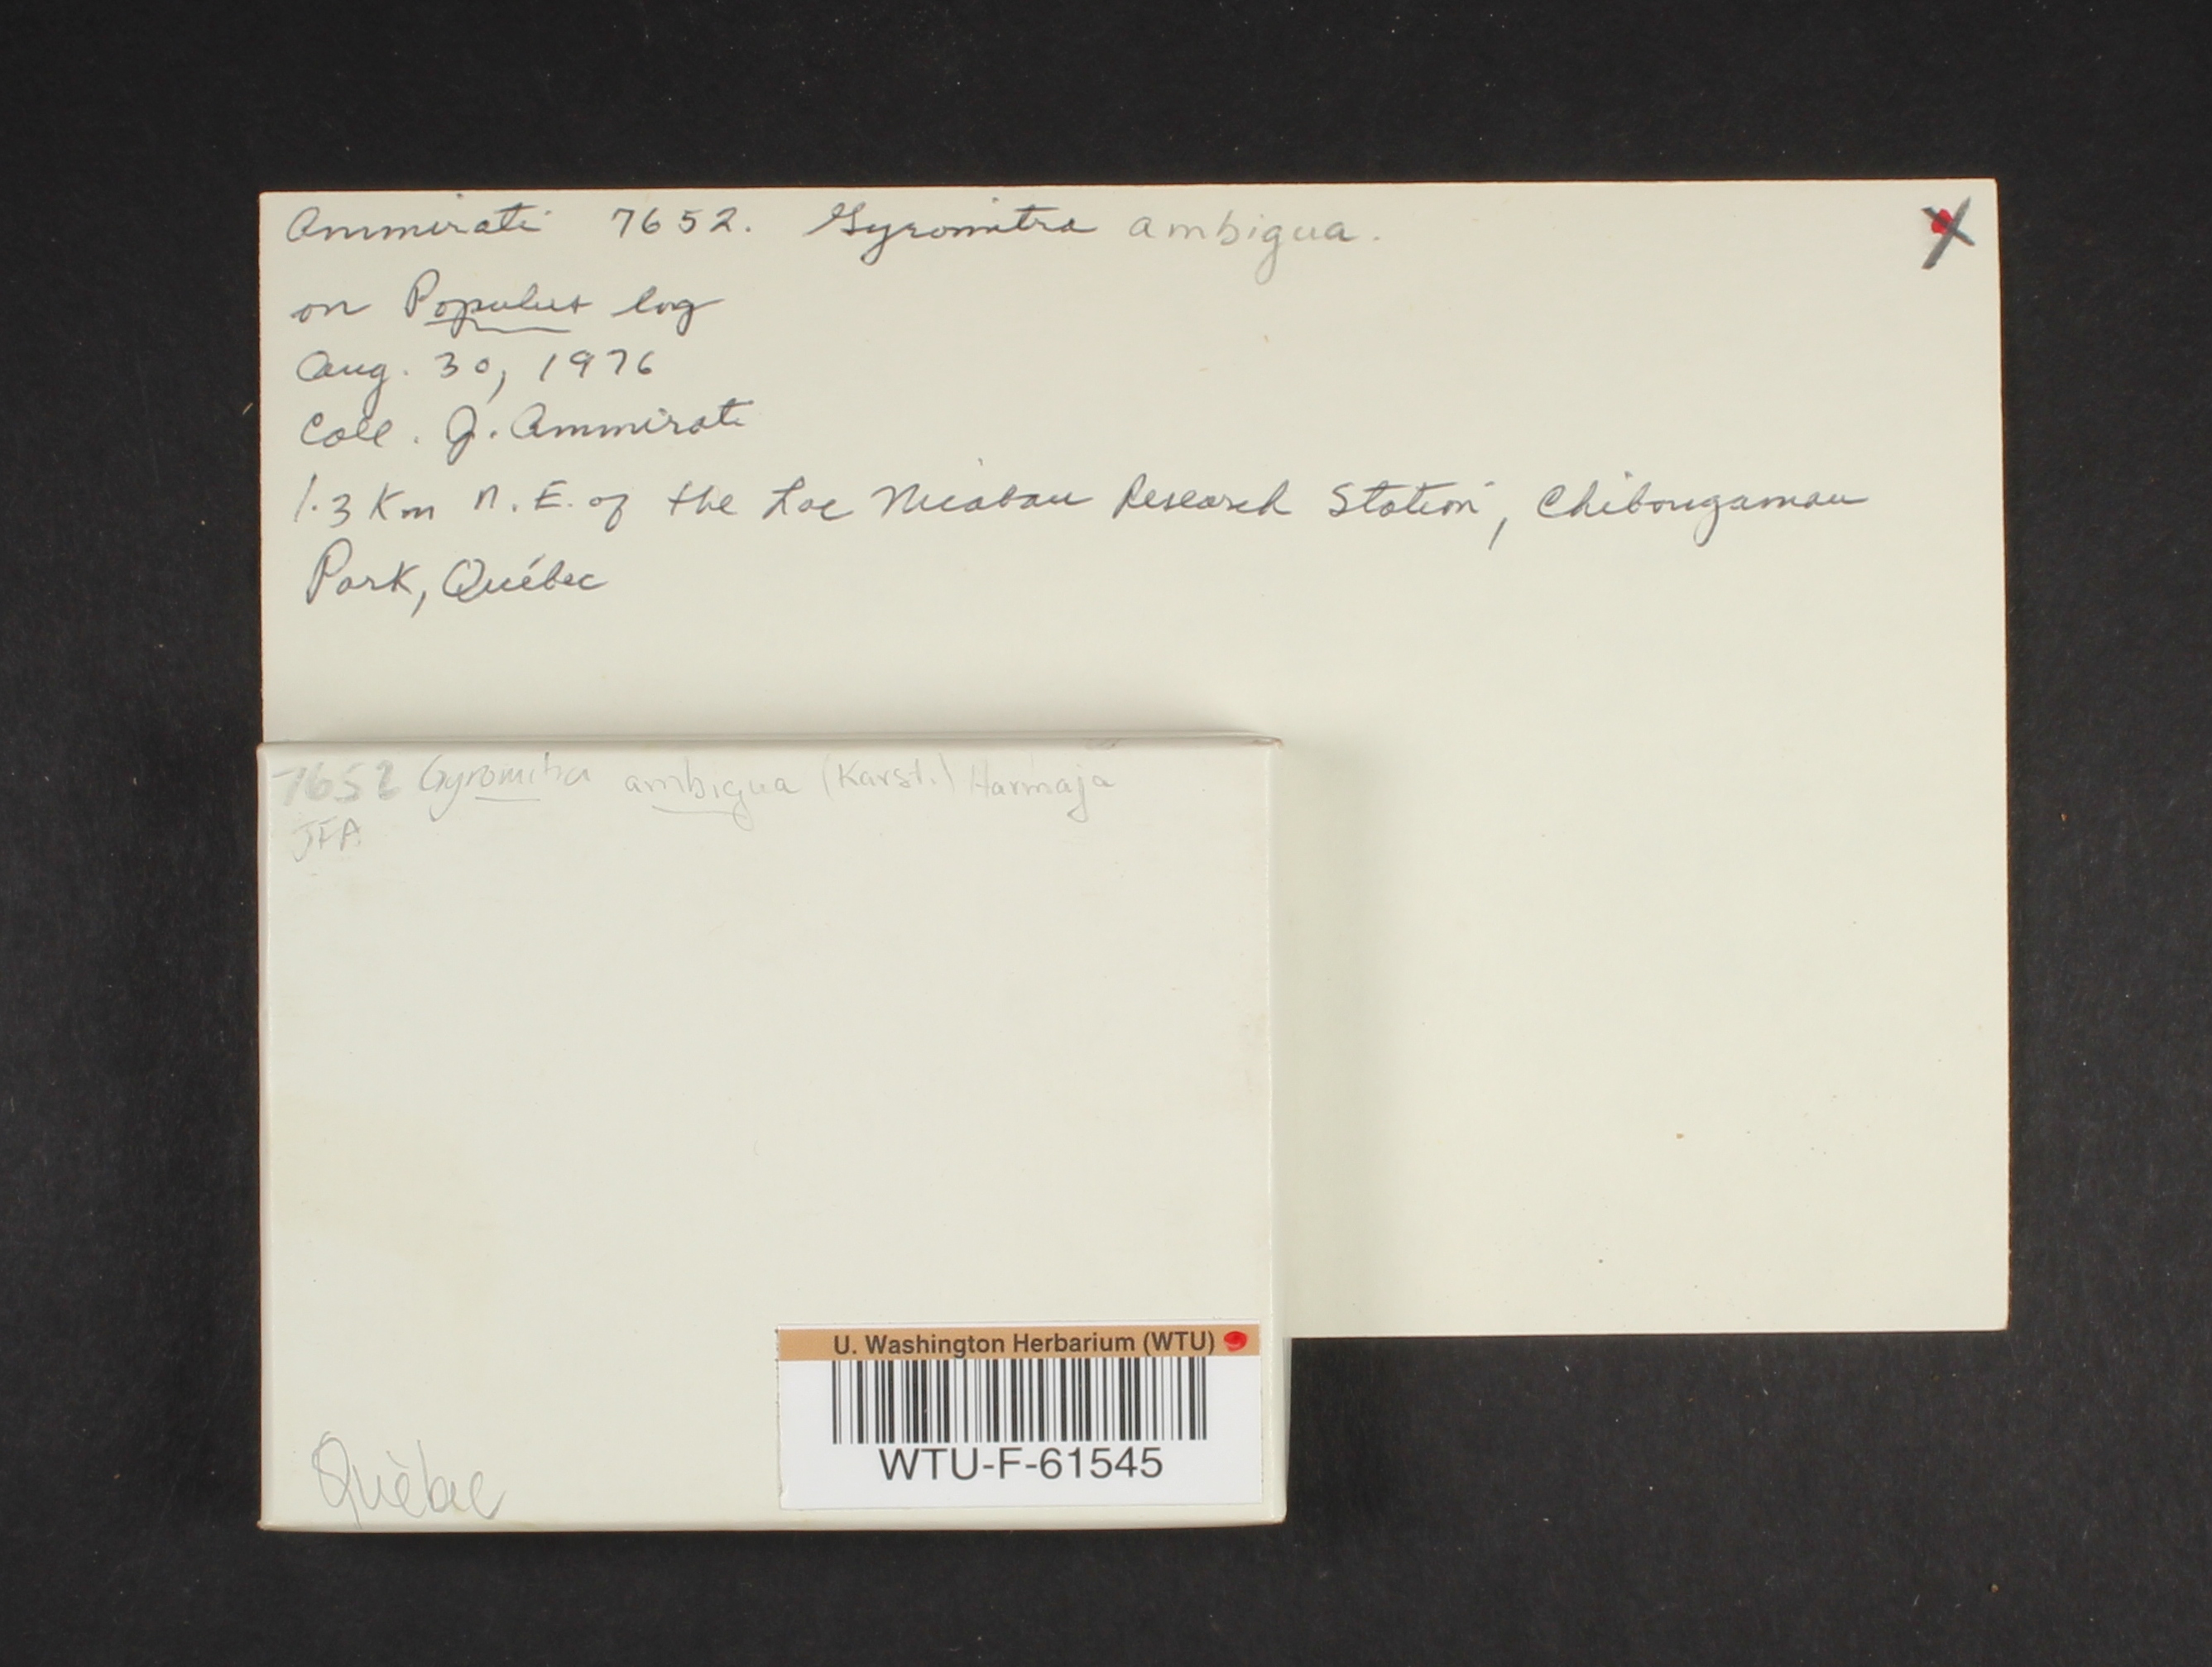 Ammirati 7652. Gyromitra ambigua.
on Populus log
Aug. 30, 1976
Coll. J. Ammirati
1.3 Km N.E. of the Lac Nicabau Research Station, Chibougamau
Park, Québec
7652 Gyromitra ambigua (Karst.) Harmaja
JFA
U. Washington Herbarium (WTU)
WTU-F-61545
Quèbec